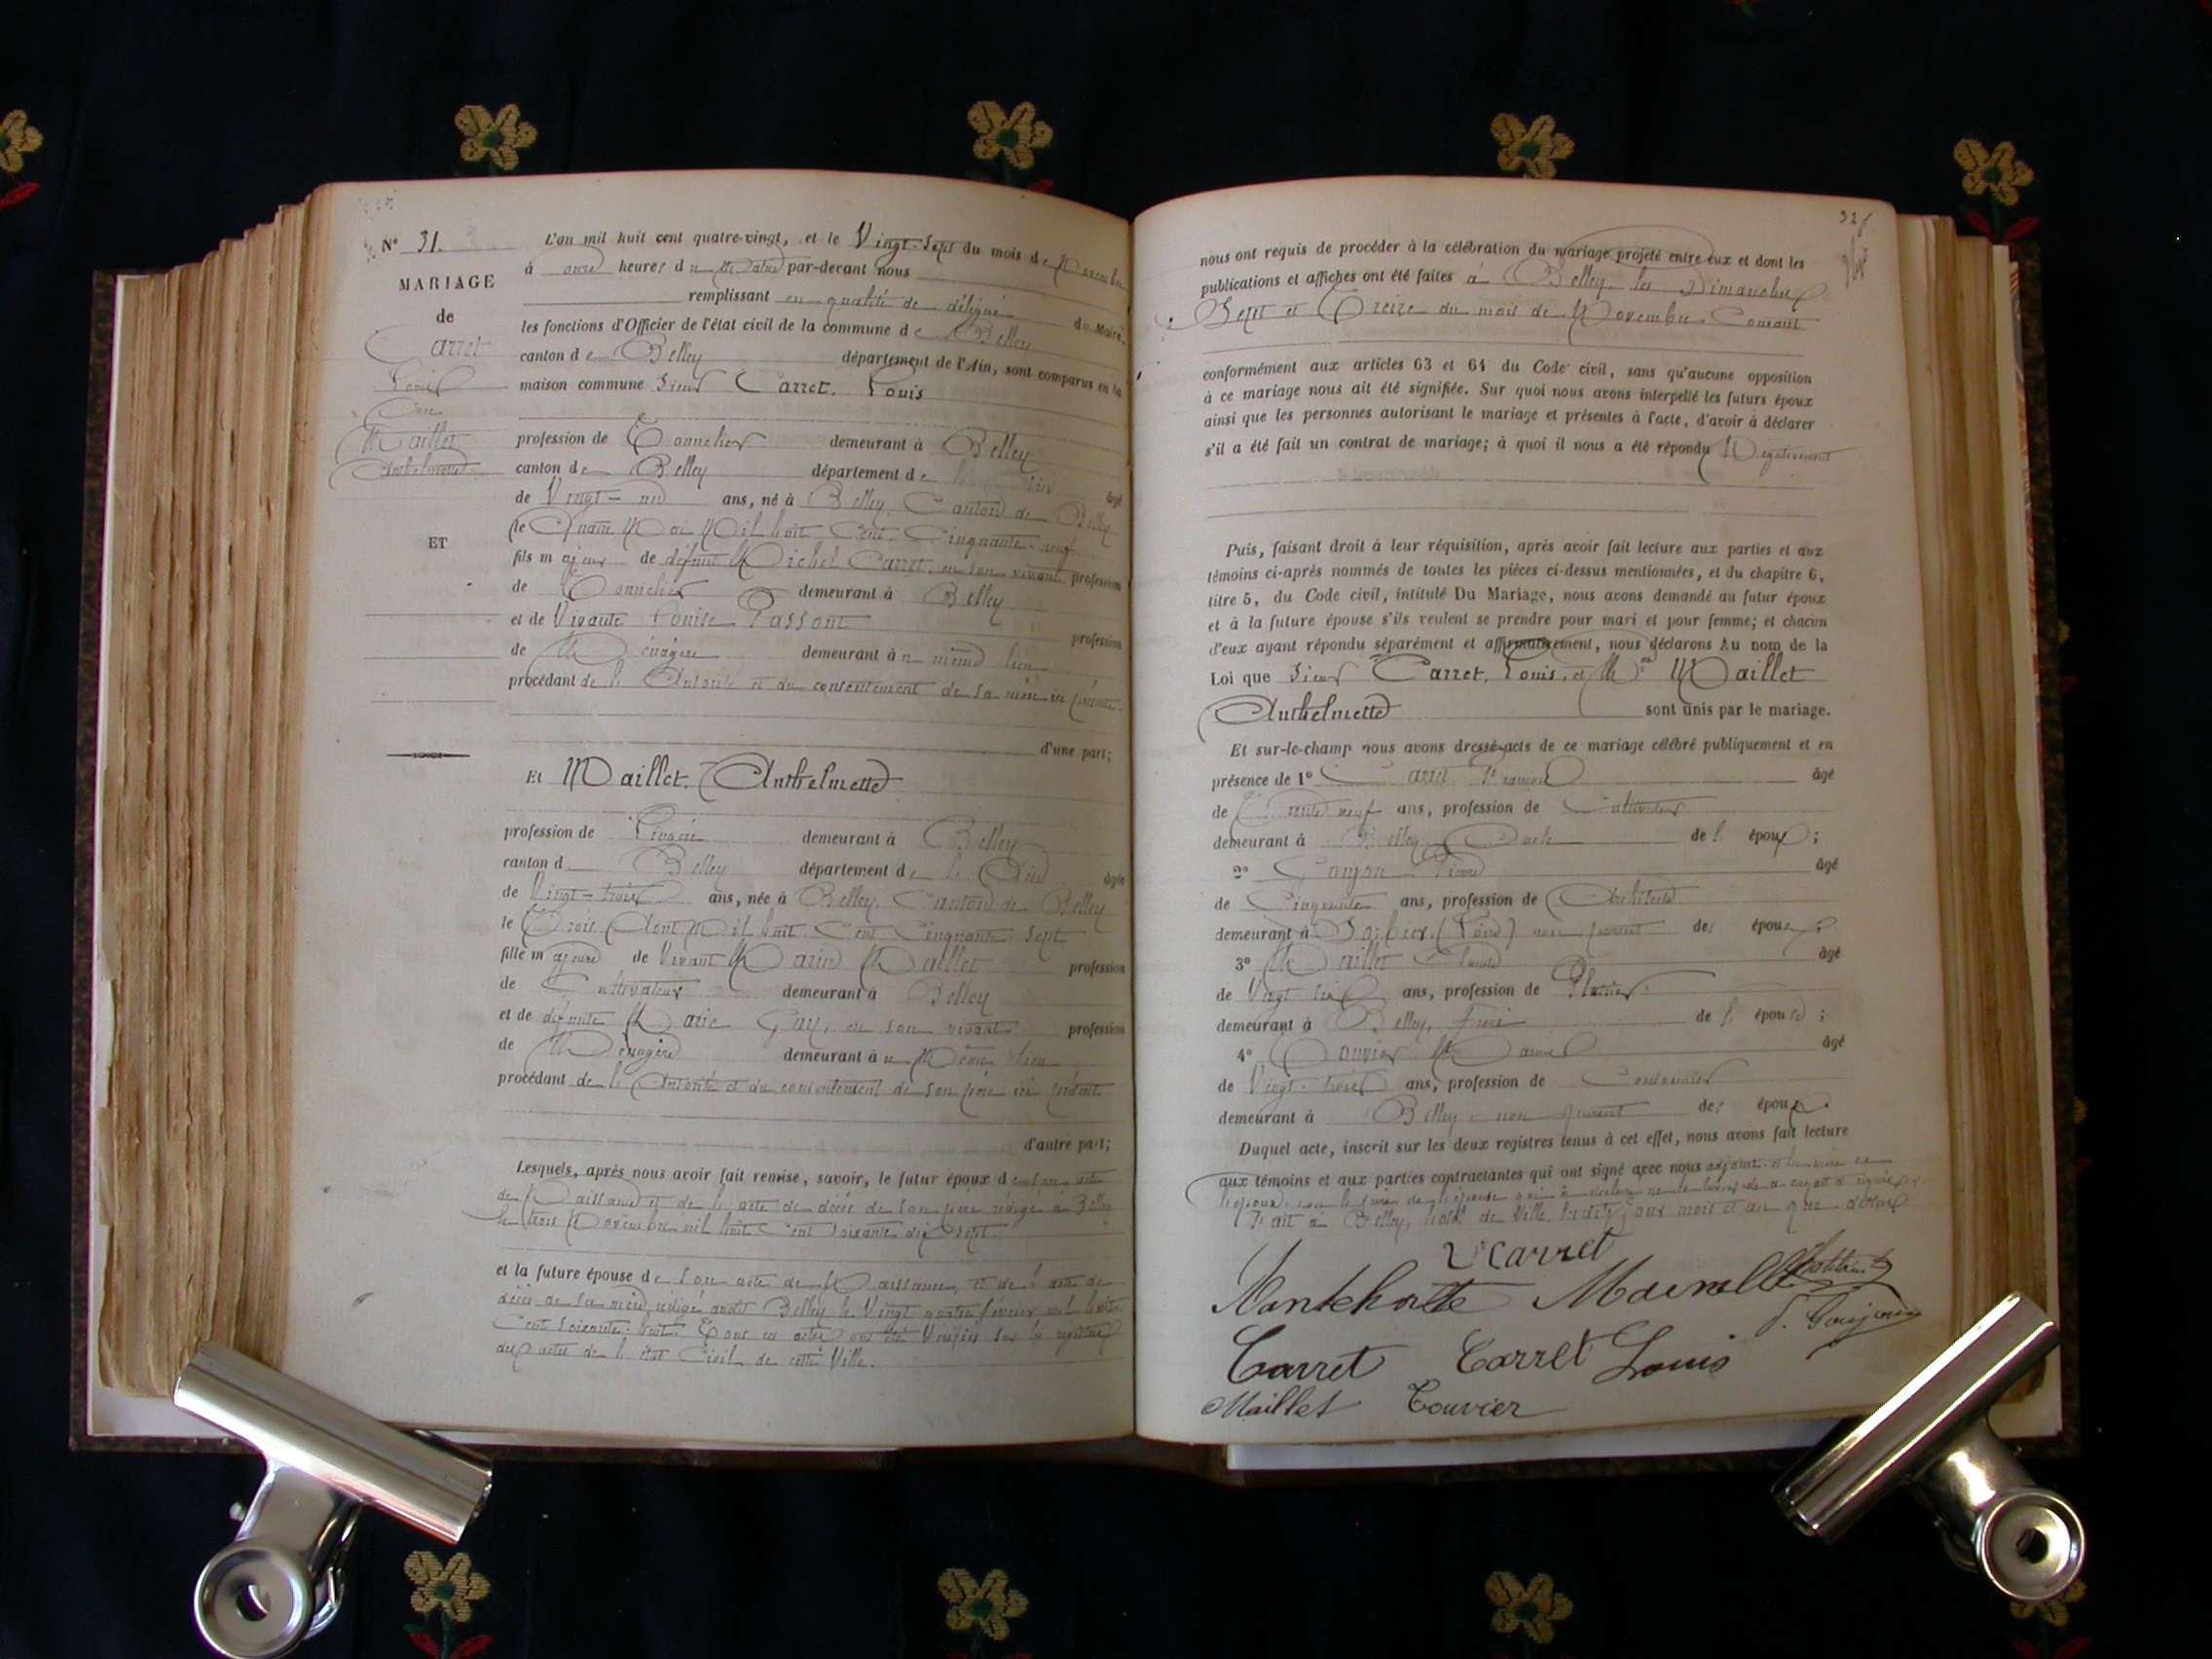 N° 31.
MARIAGE
de
Carret
Louis
Maillet
Anthelmette
ET
L'an mil huit cent quatre-vingt, et le Vingt-Sept du mois de Novembre
à onze heures du Matin par-devant nous
remplissant en qualité de délégué du Maire,
les fonctions d'Officier de l'état civil de la commune de Belley
canton de Belley département de l'Ain, sont comparus en la
maison commune Sieur Carret, Louis
profession de Tonnelier demeurant à Belley
canton de Belley département de l'Ain âgé
de Vingt-un ans, né à Belley, Canton de Belley
le Quatre Mai Mil huit Cent Cinquante-neuf
fils majeur de défunt Michel Carret, en son vivant profession
de Tonnelier demeurant à Belley
et de Vivante Louise Passont profession
de Ménagère demeurant à u même lieu
procédant de l'Autorité et du consentement de sa mère ici présente
d'une part;
Et Maillet, Anthelmette
profession de Lingère demeurant à Belley
canton d Belley département de l'Ain âgée
de Vingt-trois ans, née à Belley, Canton de Belley
le Trois Août Mil huit Cent Cinquante-Sept
fille majeure de Vivant Marin Maillet profession
de Cultivateur demeurant à Belley
et de défunte Marie Gay, en son vivant profession
de Ménagère demeurant à u Même lieu
procédant de l'Autorité et du consentement de son père ici présent
d'autre part;
Lesquels, après nous avoir fait remise, savoir, le futur époux de son acte
de Naissance et de l'acte de décès de son père rédigé à Belley
le trois Novembre mil huit Cent soixante dix sept.
et la future épouse de son acte de Naissance, et de l'acte de
décès de sa mère, rédigé audit Belley le Vingt quatre février mil huit
Cent soixante-huit. Tous ces actes ont été Vérifiés sur les registres
des actes de l'état Civil de cette Ville.
32
nous ont requis de procéder à la célébration du mariage projeté entre eux et dont les
publications et affiches ont été faites à Belley, les Dimanches
Sept et Treize du mois de Novembre Courant
conformément aux articles 63 et 64 du Code civil, sans qu'aucune opposition
à ce mariage nous ait été signifiée. Sur quoi nous avons interpellé les futurs époux
ainsi que les personnes autorisant le mariage et présentes à l'acte, d'avoir à déclarer
s'il a été fait un contrat de mariage; à quoi il nous a été répondu Négativement
Puis, faisant droit à leur réquisition, après avoir fait lecture aux parties et aux
témoins ci-après nommés de toutes les pièces ci-dessus mentionnées, et du chapitre 6,
titre 5, du Code civil, intitulé Du Mariage, nous avons demandé au futur époux
et à la future épouse s'ils veulent se prendre pour mari et pour femme; et chacun
d'eux ayant répondu séparément et affirmativement, nous déclarons Au nom de la
Loi que Sieur Carret, Louis, et Maillet
Anthelmette sont unis par le mariage.
Et sur-le-champ nous avons dressé acte de ce mariage célébré publiquement et en
présence de 1° Carret âgé
de Trente neuf ans, profession de Cultivateur
demeurant à Belley, Oncle de l' époux;
2° Goujon Pierre âgé
de Cinquante ans, profession de Architecte
demeurant à Sorbier, (Loire) non parent des époux;
3° Maillet âgé
de Vingt-six ans, profession de Plâtrier
demeurant à Belley, frère de l' épouse;
4° âgé
de Vingt-trois ans, profession de Cordonnier
demeurant à Belley, non parent des époux.
Duquel acte, inscrit sur les deux registres tenus à cet effet, nous avons fait lecture
aux témoins et aux parties contractantes qui ont signé avec nous adjoint
Fait à Belley, hôtel de Ville, les dits jour mois et an que dessus
Carret
P. Goujon
Carret Carret Louis
Maillet Touvier